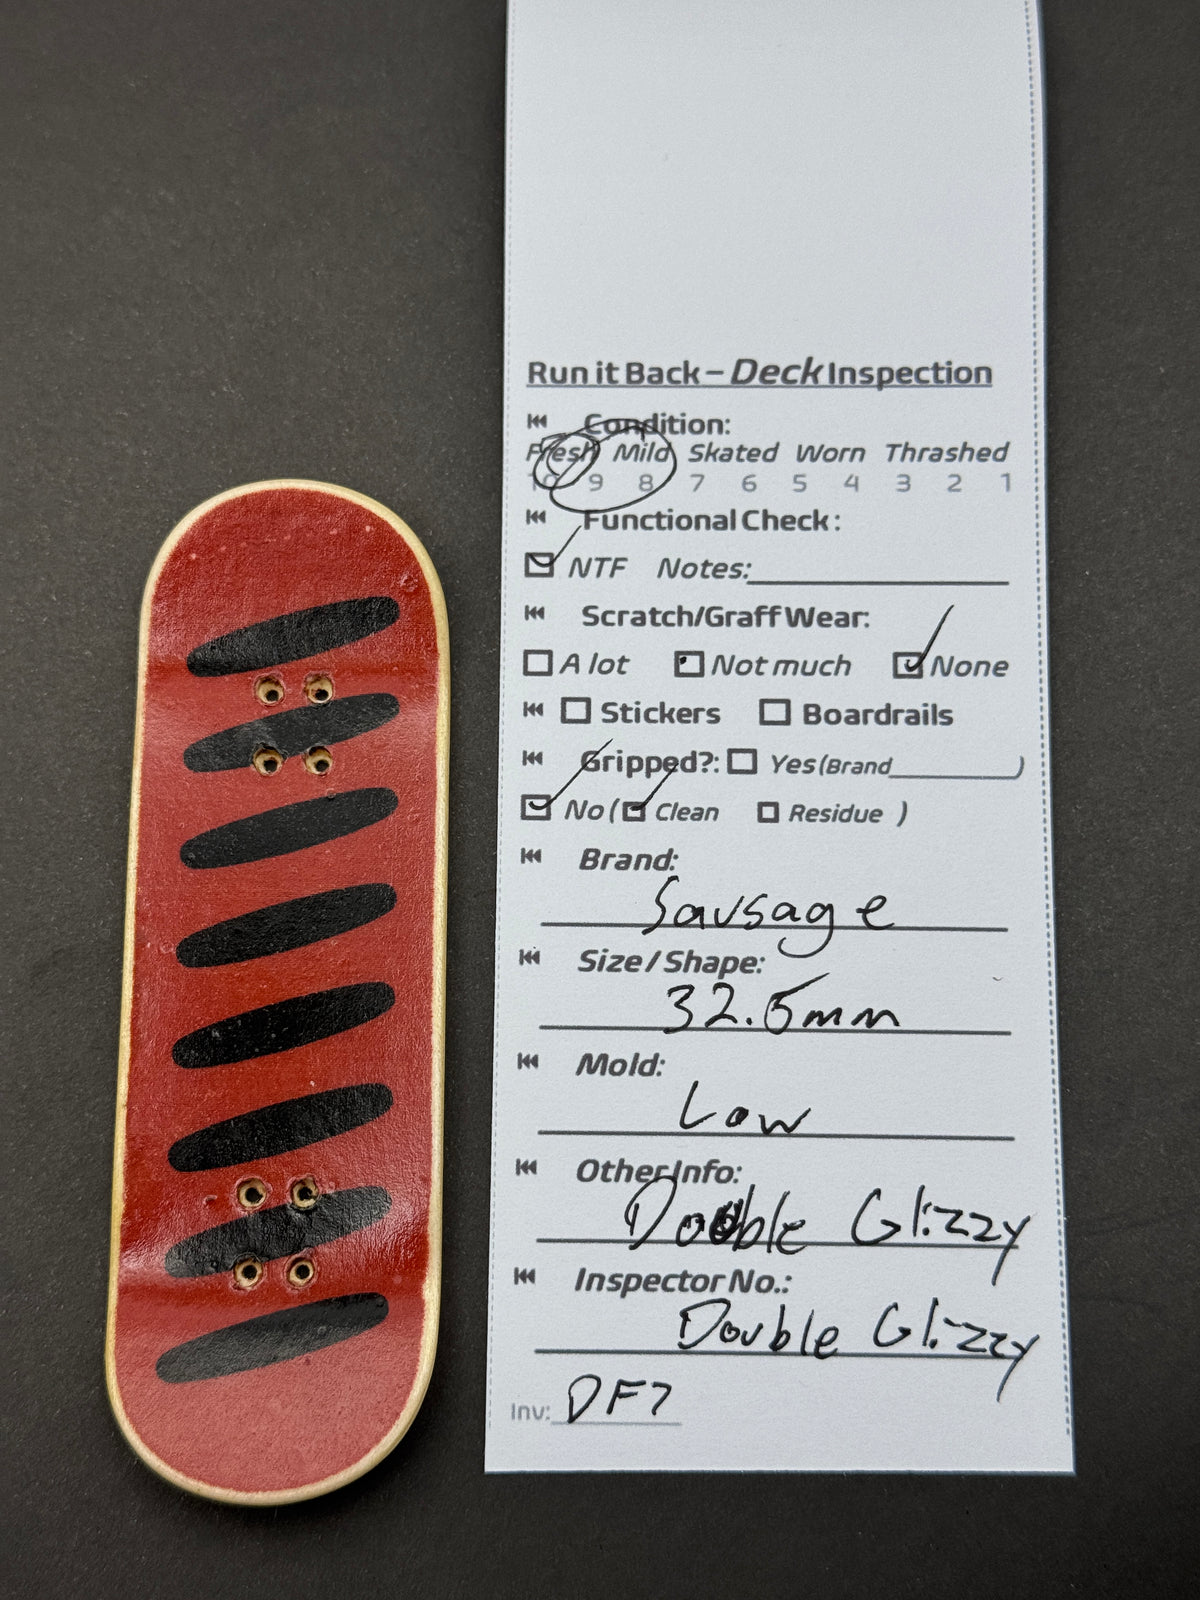 Run it Back – Deck Inspection
Condition:
Fresh Mild Skated Worn Thrashed
10 9 8 7 6 5 4 3 2 1
Functional Check:
NTF Notes:
Scratch/Graff Wear:
A lot Not much None
Stickers Boardrails
Gripped?: Yes (Brand )
No ( Clean Residue )
Brand:
Sausage
Size / Shape:
32.5mm
Mold:
Low
Other Info:
Double Glizzy
Inspector No.:
Double Glizzy
Inv: DF7